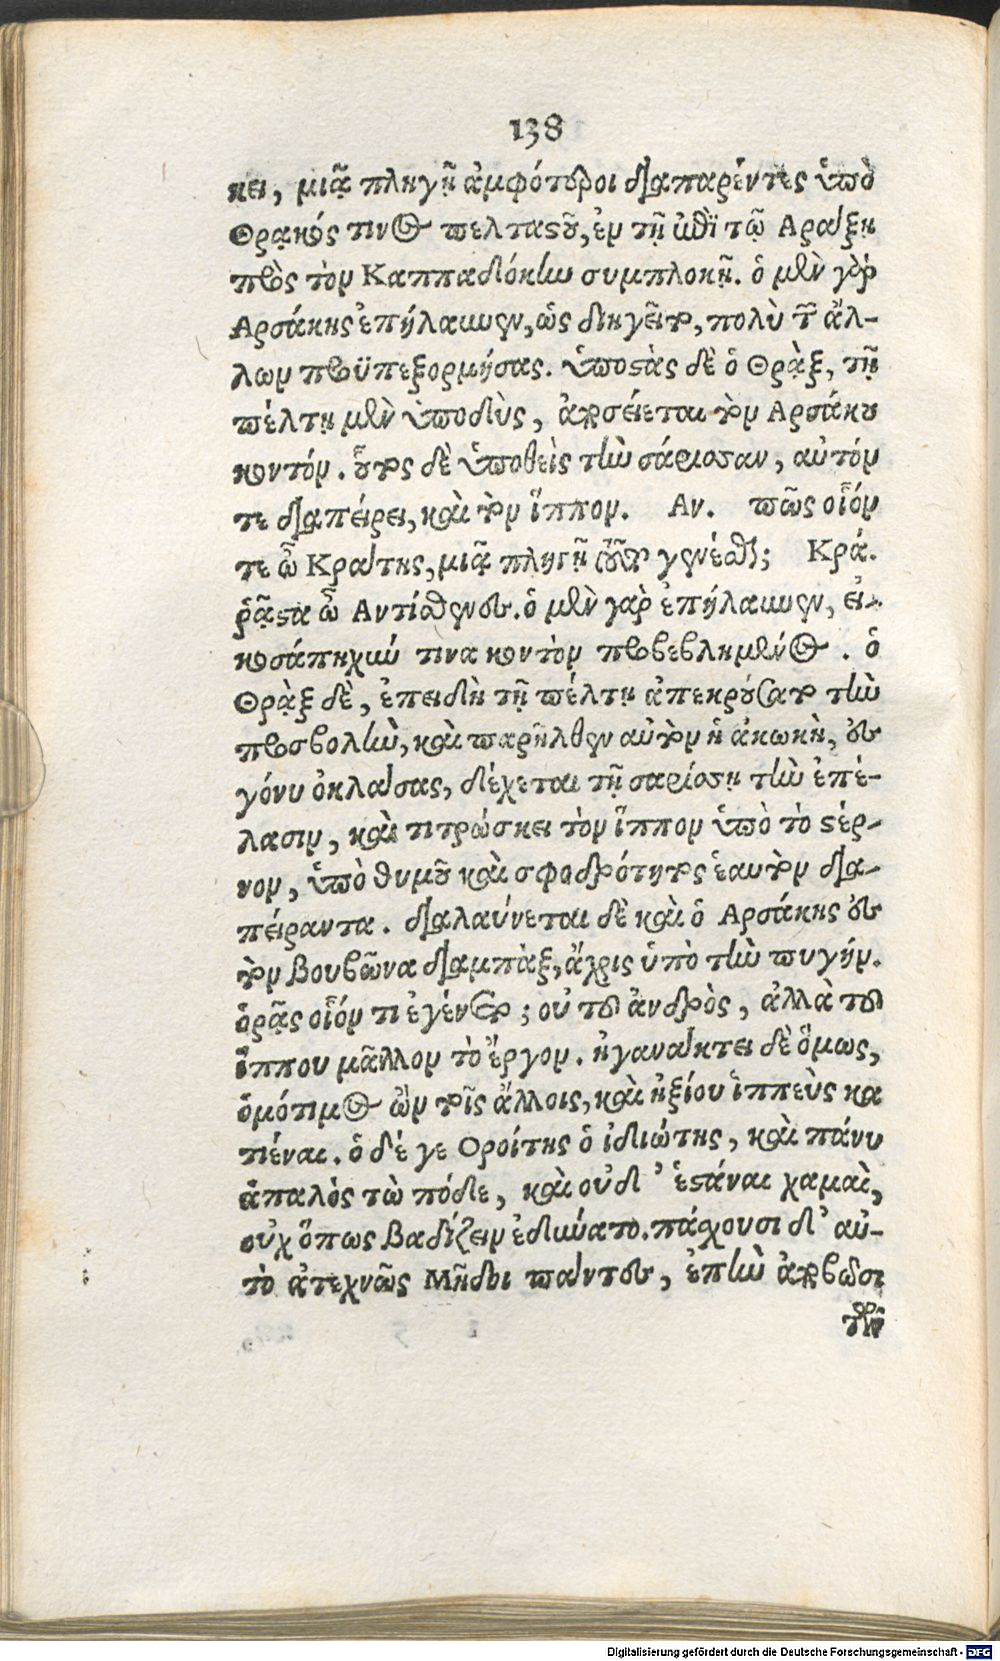 138
κει, μιᾷ πληγῇ ἀμφότεροι διαπαρέντες ὑπὸ
Θρᾳκός τινος πελταστοῦ, ἐν τῇ ἐπὶ τῷ Αράξῃ
πρὸς τὸν Καππαδόκην συμπλοκῇ. ὁ μὲν γὰρ
Αρσάκης ἐπήλαυνεν, ὡς διηγεῖτο, πολὺ τῶν ἄλ-
λων προϋπεξορμήσας. ὑποστὰς δὲ ὁ Θρᾲξ, τῇ
πέλτῃ μὲν ὑποδὺς, ἀποσείεται τὸν Αρσάκου
κοντόν. οὗτος δὲ ὑποθεὶς τὴν σάρισσαν, αὐτόν
τε διαπείρει, καὶ τὸν ἵππον. Αν. πῶς οἷόν
τε ὦ Κράτης, μιᾷ πληγῇ τοῦτο γενέσθαι; Κρά.
ῥᾷστα ὦ Αντίσθενες. ὁ μὲν γὰρ ἐπήλαυνεν, εἰ-
κοσάπηχύν τινα κοντὸν προβεβλημένος. ὁ
Θρᾲξ δὲ, ἐπειδὴ τῇ πέλτῃ ἀπεκρούσατο τὴν
προσβολὴν, καὶ παρῆλθεν αὐτὸν ἡ ἀκωκὴ, ἐς
γόνυ ὀκλάσας, δέχεται τῇ σαρίσσῃ τὴν ἐπέ-
λασιν, καὶ τιτρώσκει τὸν ἵππον ὑπὸ τὸ στέρ-
νον, ὑπὸ θυμοῦ καὶ σφοδρότητος ἑαυτὸν δια-
πείραντα. διελαύνεται δὲ καὶ ὁ Αρσάκης ἐς
τὸν βουβῶνα διαμπὰξ, ἄχρις ὑπὸ τὴν πυγήν.
ὁρᾷς οἷόν τι ἐγένετο; οὐ τοῦ ἀνδρὸς, ἀλλὰ τοῦ
ἵππου μᾶλλον τὸ ἔργον. ἠγανάκτει δὲ ὅμως,
ὁμότιμος ὢν τοῖς ἄλλοις, καὶ ἠξίου ἱππεὺς κα
τιέναι. ὁ δέ γε Οροίτης ὁ ἰδιώτης, καὶ πάνυ
ἁπαλὸς τὼ πόδε, καὶ οὐδ’ ἑστάναι χαμαὶ,
οὐχ ὅπως βαδίζειν ἐδύνατο. πάσχουσι δ’ αὐ-
τὸ ἀτεχνῶς Μῆδοι πάντες, ἐπὴν ἀποβῶσι
τῶν
Digitalisierung gefördert durch die Deutsche Forschungsgemeinschaft - DFG